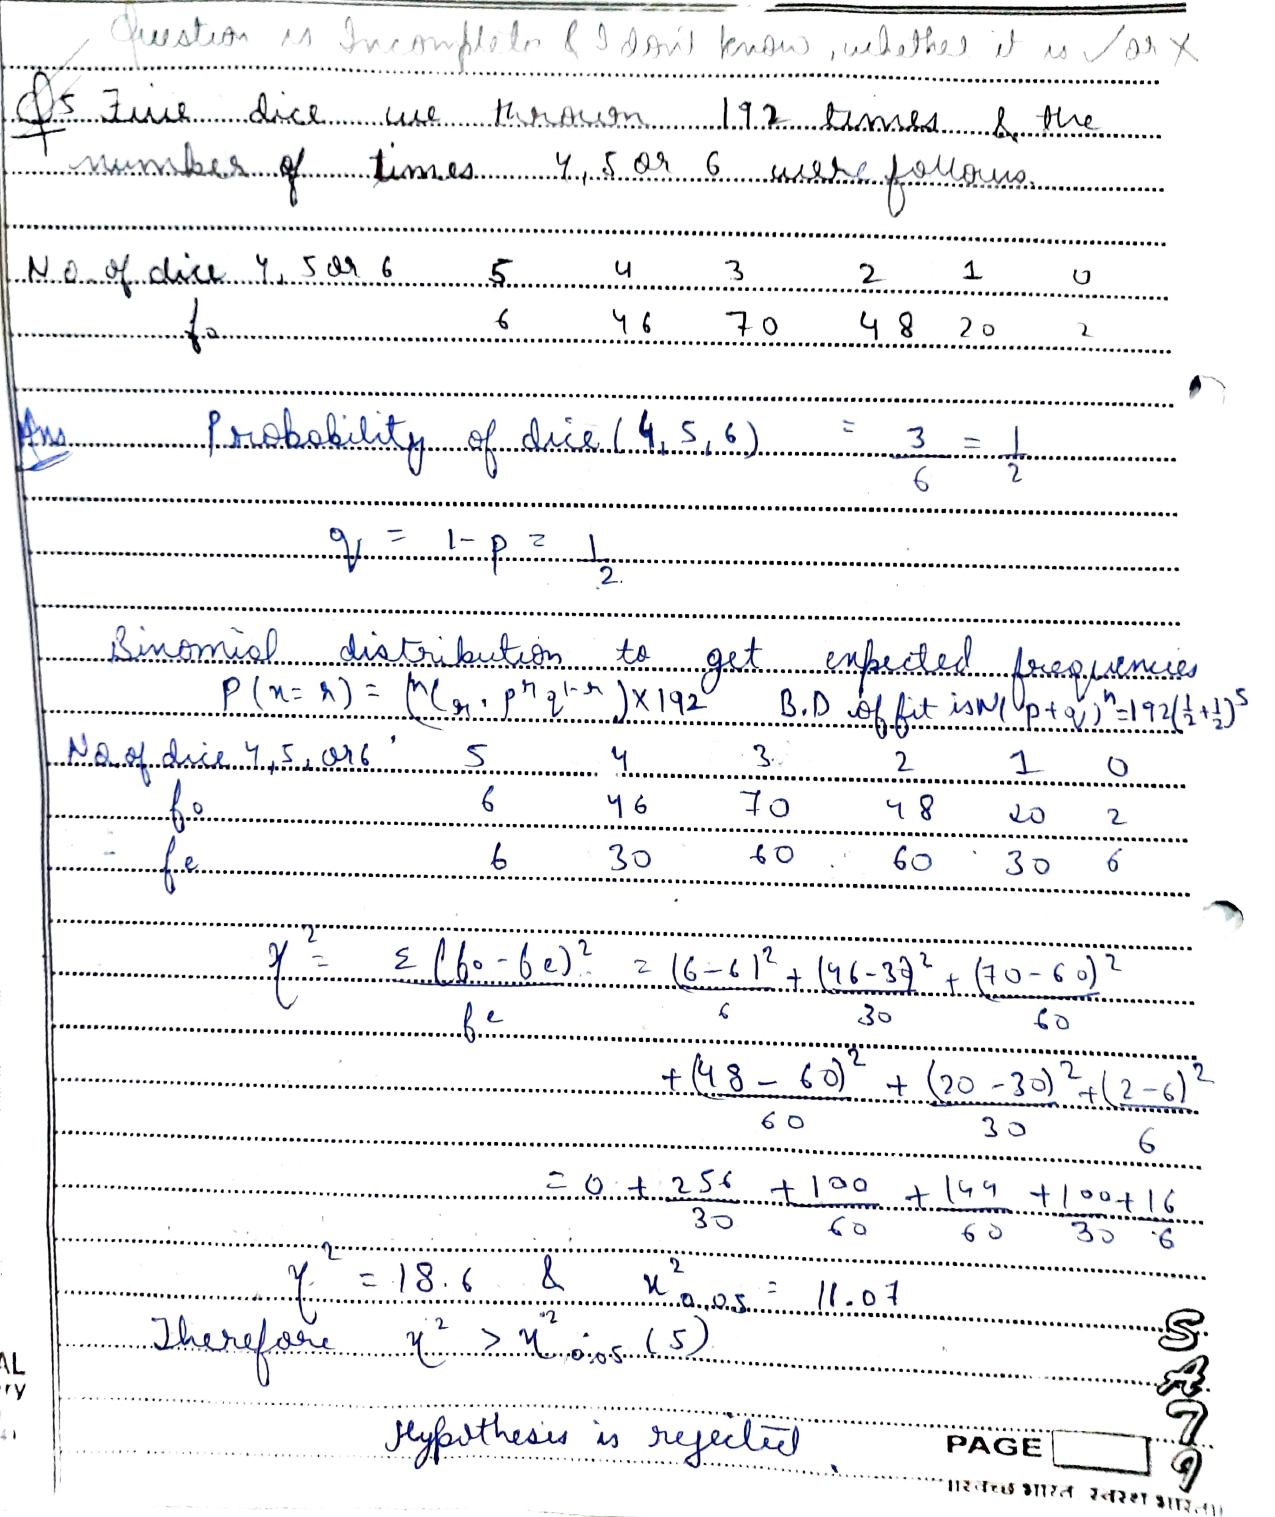 Question is Incomplete & I don't know, whether it is ✓ or ×
Q5 Five dice are thrown 192 times & the
number of times 4, 5 or 6 were follows.
No. of dice 4, 5 or 6 5 4 3 2 1 0
fo 6 46 70 48 20 2
Ans Probability of dice (4, 5, 6) = 3/6 = 1/2
q = 1-p = 1/2.
Binomial distribution to get expected frequencies
P(x=r) = (ⁿCr · p^r q^1-r) × 192 B.D of fit is N(p+q)^n = 192(1/2+1/2)^5
No of dice 4, 5, or 6 5 4 3. 2 1 0
fo 6 46 70 48 20 2
fe 6 30 60 60 30 6
χ² = Σ (fo-fe)²/fe = (6-6)²/6 + (46-30)²/30 + (70-60)²/60
+ (48-60)²/60 + (20-30)²/30 + (2-6)²/6
= 0 + 256/30 + 100/60 + 144/60 + 100/30 + 16/6
χ² = 18.6 & χ²0.05 = 11.07
Therefore χ² > χ²0.05 (5)
Hypothesis is rejected
PAGE
SA79
AL
ry